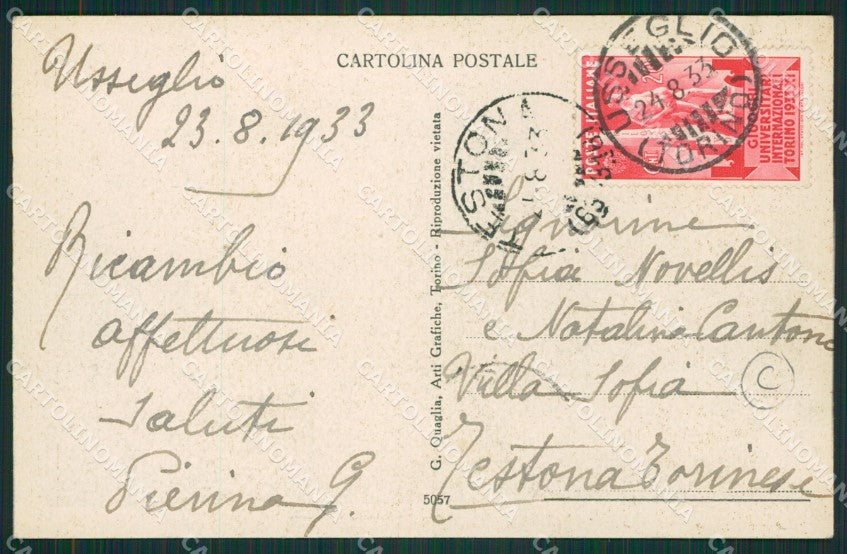 CARTOLINA POSTALE
Usseglio
23.8.1933
Ricambio
affettuosi
saluti
Pierina G.
G. Quaglia, Arti Grafiche, Torino - Riproduzione vietata
5057
POSTE ITALIANE
GIUOCHI
UNIVERSITARI
INTERNAZIONALI
TORINO 1933 XI
USSEGLIO (TORINO)
24.8.33
TESTONA
Signorine
Sofia Novellis
e Natalina Cantone
Villa Sofia
C
Testona Torinese
CARTOLINOMANIA